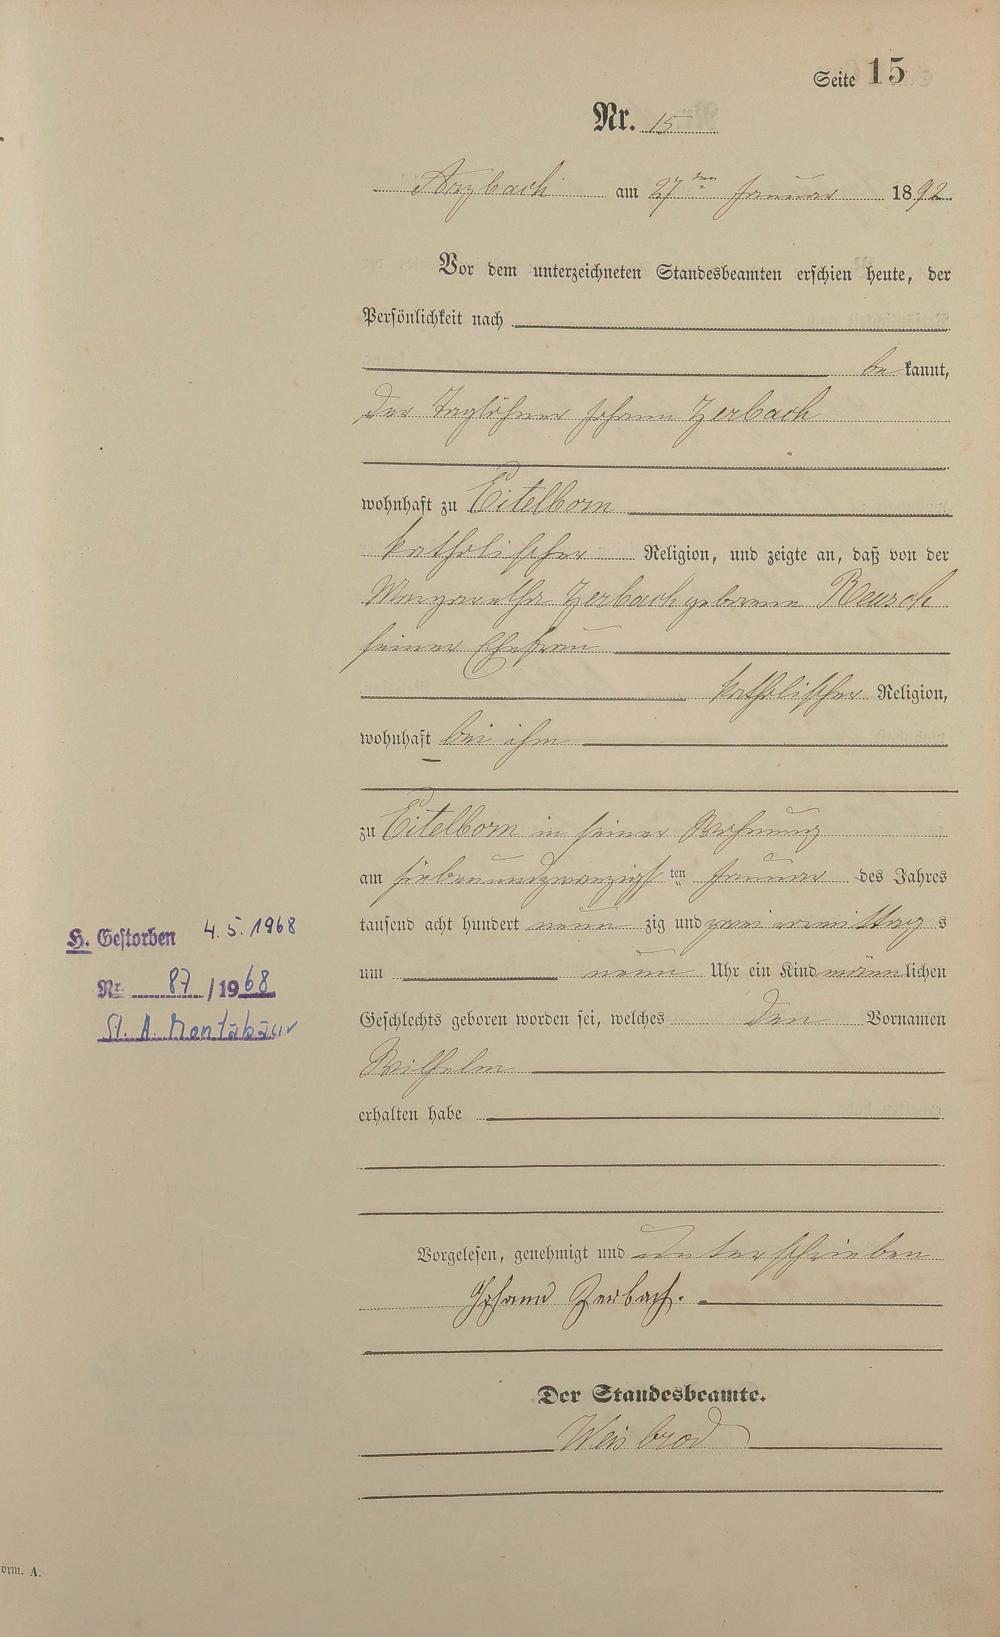 Seite 15
Nr. 15
Arzbach am 27ten Januar 1892
Vor dem unterzeichneten Standesbeamten erschien heute, der
Persönlichkeit nach
be kannt,
der Taglöhner Johann Zerbach
wohnhaft zu Eitelborn
katholischer Religion, und zeigte an, daß von der
Margaretha Zerbach geborene Reusch
seiner Ehefrau
katholischer Religion,
wohnhaft bei ihm
zu Eitelborn in seiner Wohnung
am siebenundzwanzigsten Januar des Jahres
tausend acht hundert neun zig und zwei vormittag s
um neun Uhr ein Kind männlichen
Geschlechts geboren worden sei, welches den Vornamen
Wilhelm
erhalten habe
Vorgelesen, genehmigt und unterschrieben
Johann Zerbach.
Der Standesbeamte.
Weisbrod
H. Gestorben 4.5.1968
Nr. 87/1968
St. A. Montabaur
orm. A.